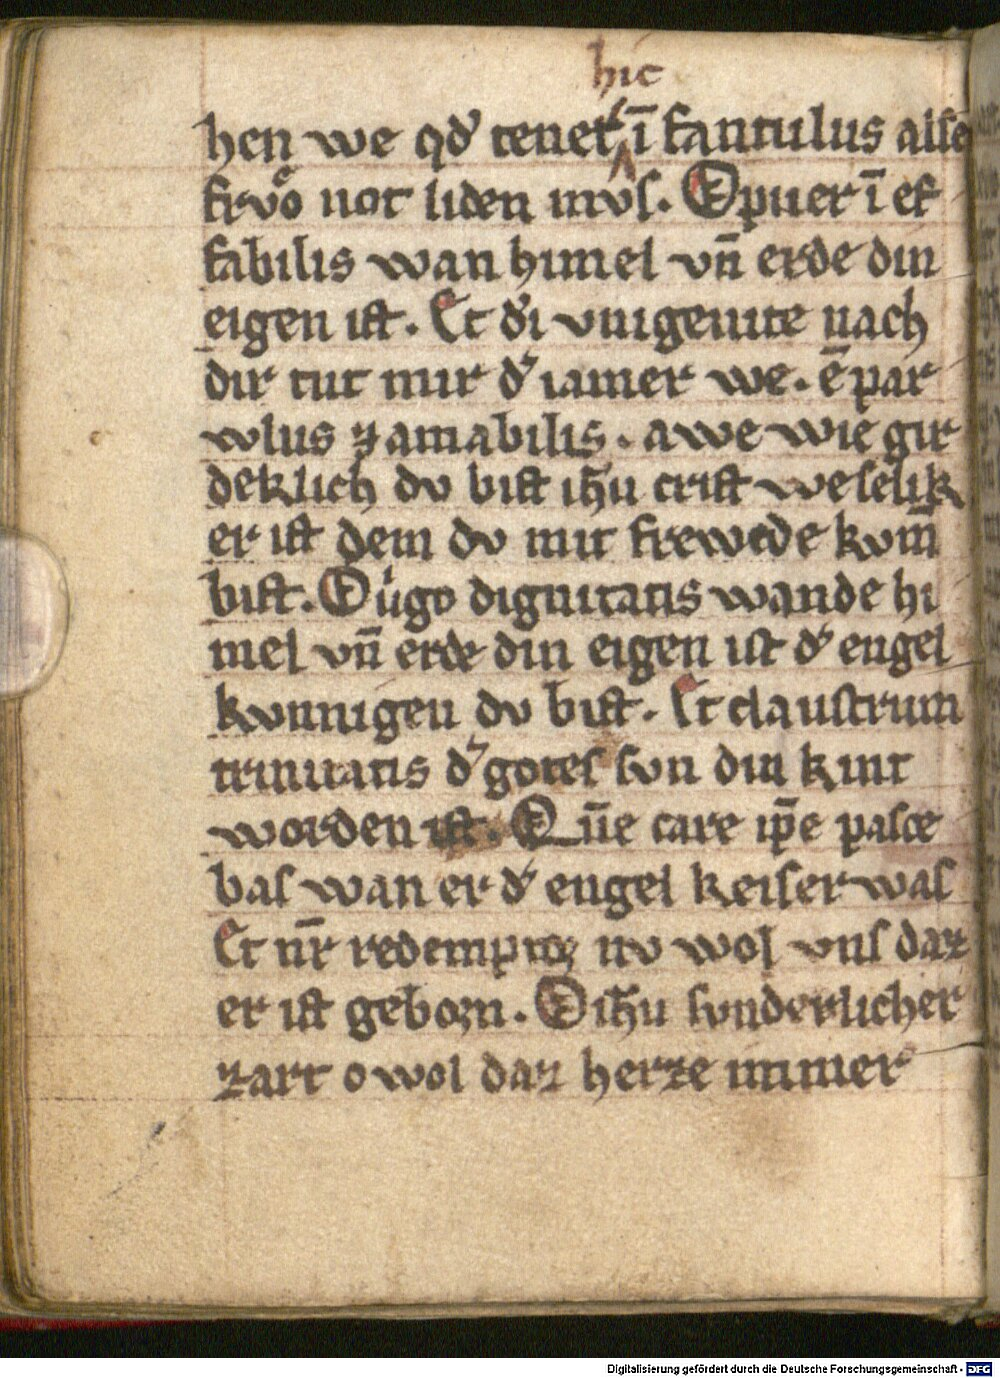 hic
hen we qd' tenet ī fantulus alse
frůo not liden mvͦs. O puer ī ef
fabilis wan himel vn̄ erde din
eigen ist. Et d'i vnigenite nach
dir tut mir d' iamer we. ē par
wlus ⁊ amabilis. awe wie gir
deklich dv bist ih̄u crist we selik
er ist dem dv mit frewede kvm̄
bist. O uͥgo dignitatis wande hi
mel vn̄ erde din eigen ist d' engel
kvnnigen dv bist. Et claustrum
trinitatis d' gotes svn din kint
worden ist. Q ūe care ip̄e pasce
bas wan er d' engel keiser was
Et nr̄ redemptoꝝ nv wol vns daz
er ist geborn. O ih̄u svnderlicher
zart o wol daz herze immer
Digitalisierung gefördert durch die Deutsche Forschungsgemeinschaft - DFG